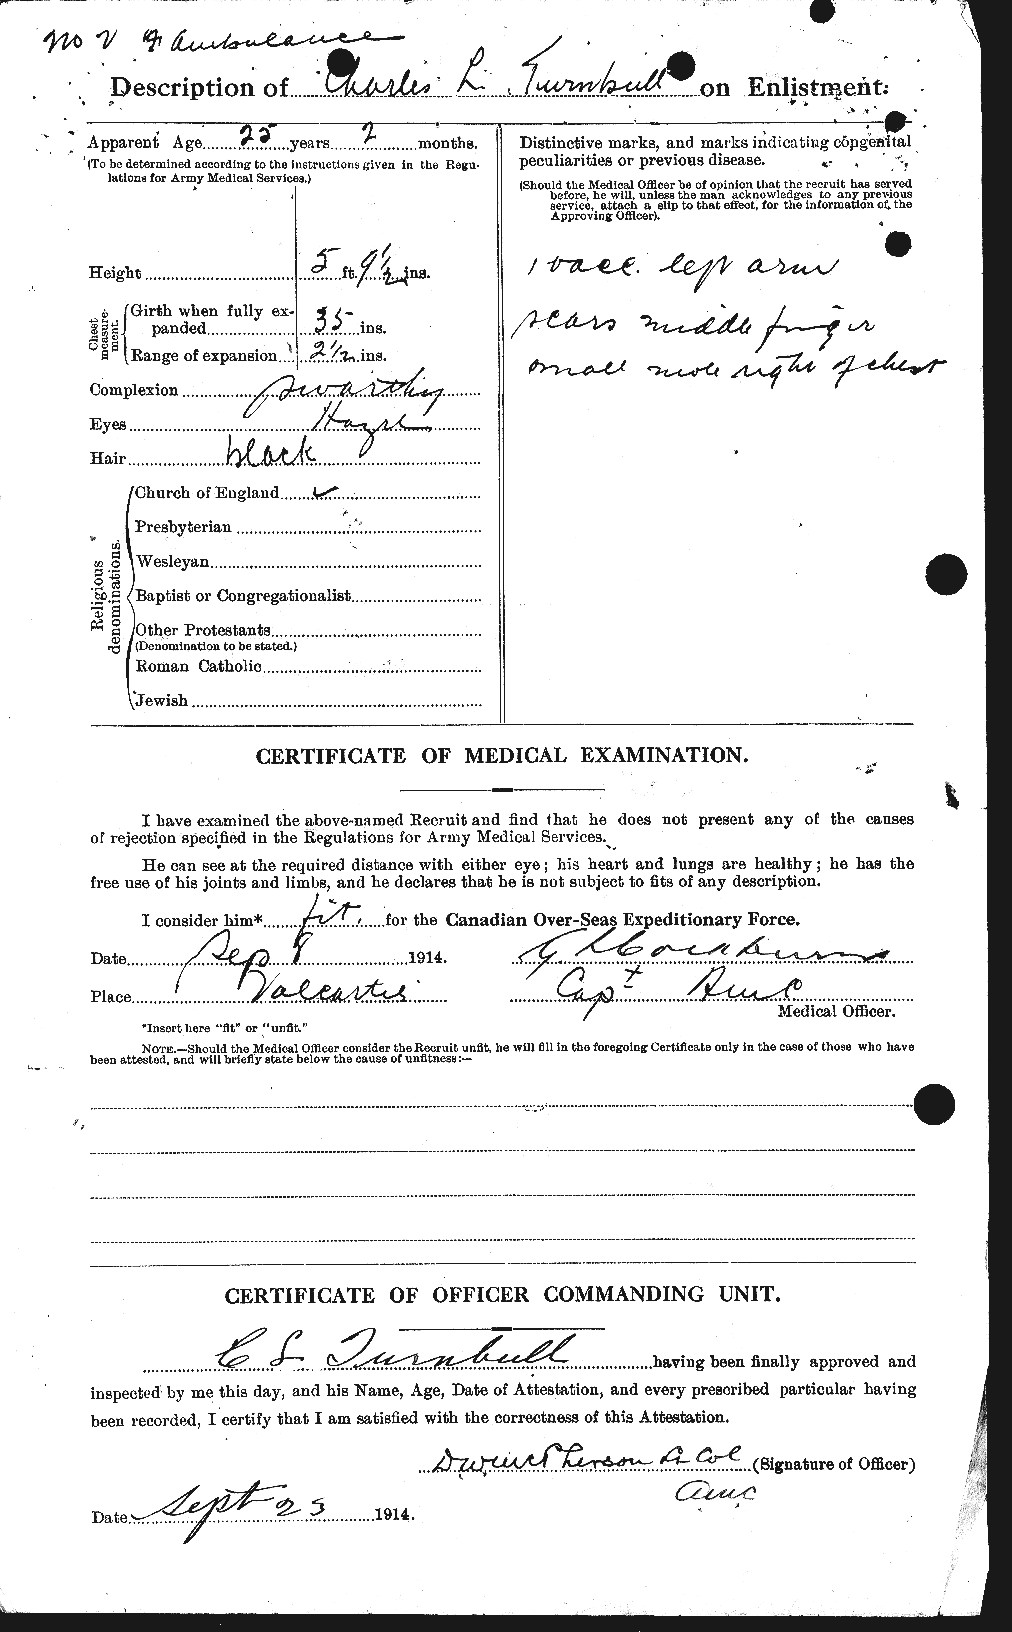 No V F Ambulance
Description of Charles L. Turnbull on Enlistment.
Apparent Age 25 years 2 months.
(To be determined according to the instructions given in the Regu-
lations for Army Medical Services.)
Height 5 ft. 9 1/2 ins.
Chest measure-ment.
Girth when fully ex-
panded 35 ins.
Range of expansion 2 1/2 ins.
Complexion swarthy
Eyes Hazel
Hair black
Religious denominations.
Church of England ✓
Presbyterian
Wesleyan
Baptist or Congregationalist
Other Protestants
(Denomination to be stated.)
Roman Catholic
Jewish
Distinctive marks, and marks indicating congenital
peculiarities or previous disease.
(Should the Medical Officer be of opinion that the recruit has served
before, he will, unless the man acknowledges to any previous
service, attach a slip to that effect, for the information of the
Approving Officer).
1 vacc. left arm
scars middle finger
small mole right of chest
CERTIFICATE OF MEDICAL EXAMINATION.
I have examined the above-named Recruit and find that he does not present any of the causes
of rejection specified in the Regulations for Army Medical Services.
He can see at the required distance with either eye; his heart and lungs are healthy; he has the
free use of his joints and limbs, and he declares that he is not subject to fits of any description.
I consider him* fit. for the Canadian Over-Seas Expeditionary Force.
Date Sep 8 1914.
Place Valcartier
Capt AMC
Medical Officer.
*Insert here "fit" or "unfit."
NOTE.—Should the Medical Officer consider the Recruit unfit, he will fill in the foregoing Certificate only in the case of those who have
been attested, and will briefly state below the cause of unfitness:—
CERTIFICATE OF OFFICER COMMANDING UNIT.
C L Turnbull having been finally approved and
inspected by me this day, and his Name, Age, Date of Attestation, and every prescribed particular having
been recorded, I certify that I am satisfied with the correctness of this Attestation.
Lt Col (Signature of Officer)
AMC
Date Sept 23 1914.